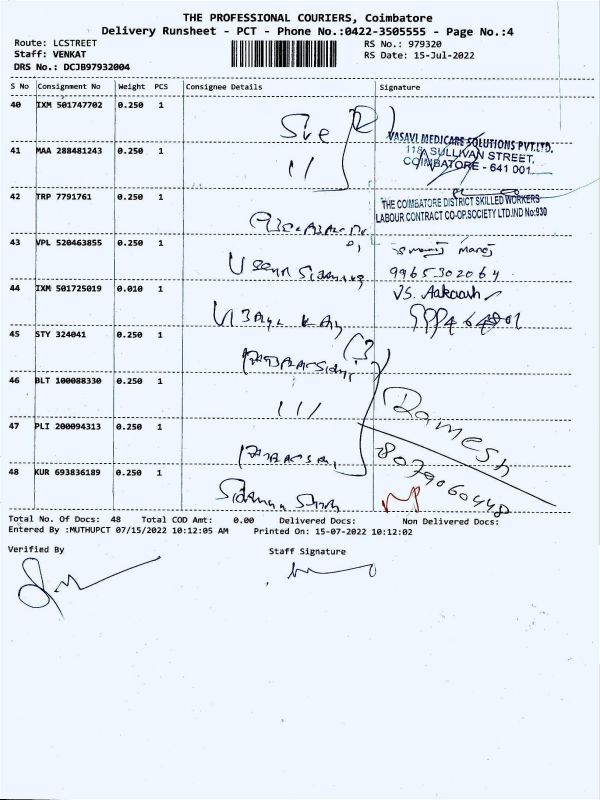 THE PROFESSIONAL COURIERS, Coimbatore
Delivery Runsheet - PCT - Phone No.:0422-3505555 - Page No.:4
Route: LCSTREET RS No.: 979320
Staff: VENKAT RS Date: 15-Jul-2022
DRS No.: DCJB97932004
S No Consignment No Weight PCS Consignee Details Signature
40 IXM 501747702 0.250 1
VASAVI MEDICARE SOLUTIONS PVT.LTD.
118, SULLIVAN STREET,
COIMBATORE - 641 001
41 MAA 288481243 0.250 1
42 TRP 7791761 0.250 1
THE COIMBATORE DISTRICT SKILLED WORKERS
LABOUR CONTRACT CO-OP.SOCIETY LTD.IND No:930
43 VPL 520463855 0.250 1
Manoj
9965302064
44 IXM 501725019 0.010 1
VS. Aakaash
45 STY 324041 0.250 1
46 BLT 100088330 0.250 1
Ramesh
47 PLI 200094313 0.250 1
8079060448
48 KUR 693836189 0.250 1
Total No. Of Docs: 48 Total COD Amt: 0.00 Delivered Docs: Non Delivered Docs:
Entered By :MUTHUPCT 07/15/2022 10:12:05 AM Printed On: 15-07-2022 10:12:02
Verified By Staff Signature